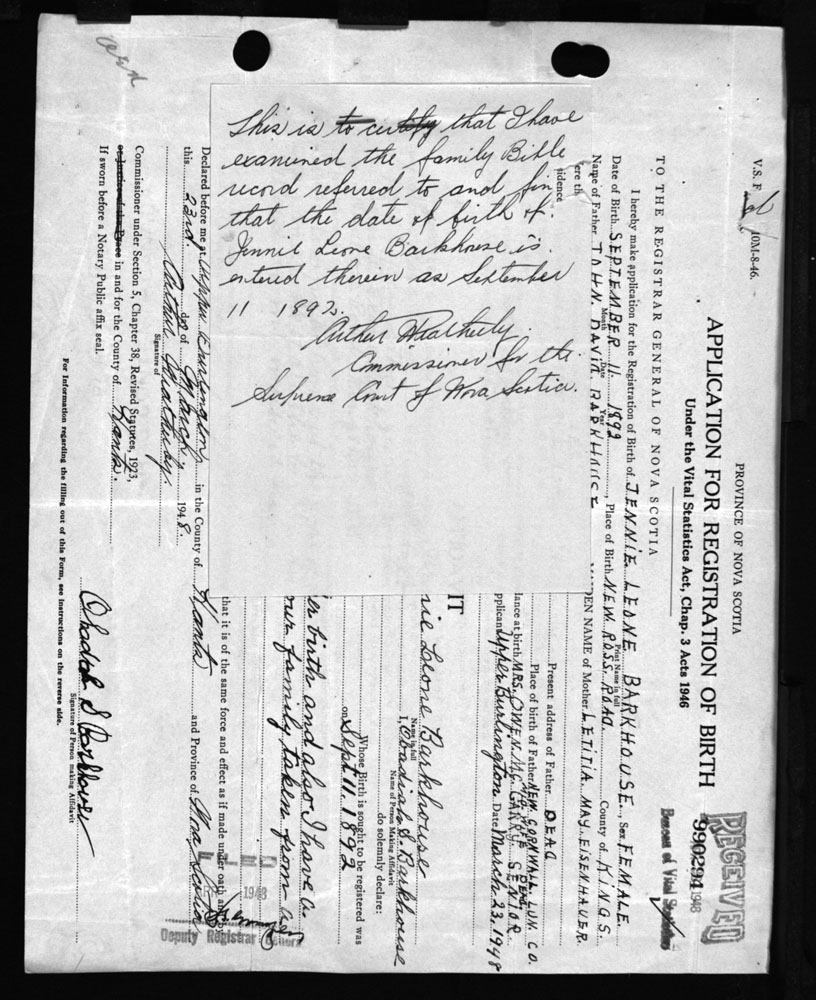 This is to certify that I have
examined the family Bible
record referred to and fin
that the date of birth of
Jennie Leone Barkhouse is
entered therein as September
11 1892.
Arthur
Commissioner for the
Supreme Court of Nova Scotia.
V.S. F 10M-8-46.
PROVINCE OF NOVA SCOTIA
APPLICATION FOR REGISTRATION OF BIRTH
Under the Vital Statistics Act, Chap. 3 Acts 1946
RECEIVED
990294 1948
Bureau of Vital Statistics
TO THE REGISTRAR GENERAL OF NOVA SCOTIA
I hereby make application for the Registration of Birth of JENNIE LEONE BARKHOUSE, Sex FEMALE
Print Name in full
Date of Birth SEPTEMBER 11 1892, Place of Birth NEW ROSS ROAD, County of KINGS
Month Date Year
Name of Father JOHN DAVID BARKHOUSE
DEN NAME of Mother LETITIA MAY EISENHAUER
Present address of Father DEAD
Place of birth of Father NEW CORNWALL LUN. CO.
lance at birth MRS. OWEN Mc GARRY SENIOR
pplicant Upper Burlington Date March 23. 1948
ere th
idence
IT
I, Obadiah S. Barkhouse
Name of Person Making Affidavit
do solemnly declare:
nie Leone Barkhouse
Name in full
Whose Birth is sought to be registered was
on Sept. 11. 1892
er birth and also I have a
our family taken from
that it is of the same force and effect as if made under oath and by
Declared before me at Upper Burlington in the County of Hants and Province of Nova Scotia
this 23rd day of March 1948.
Signature of
Commissioner under Section 5, Chapter 38, Revised Statutes, 1923,
or Justice of the Peace in and for the County of Hants.
If sworn before a Notary Public affix seal.
1948
Deputy Registrar General
Obadiah S Barkhouse
Signature of Person making Affidavit
For Information regarding the filling out of this Form, see instructions on the reverse side.